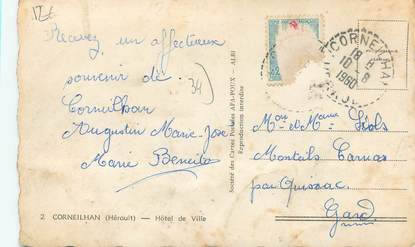 Recevez un affectueux
souvenir de
Corneilhan
Augustin Marie-José
Marie Benoite
34
2 CORNEILHAN (Hérault) — Hôtel de Ville
Société des Cartes Postales APA-POUX - ALBI
Reproduction interdite
CORNEILHA
18 H
10 - 8
1960
Mr et Mme
Monteils
par Quissac
Gard